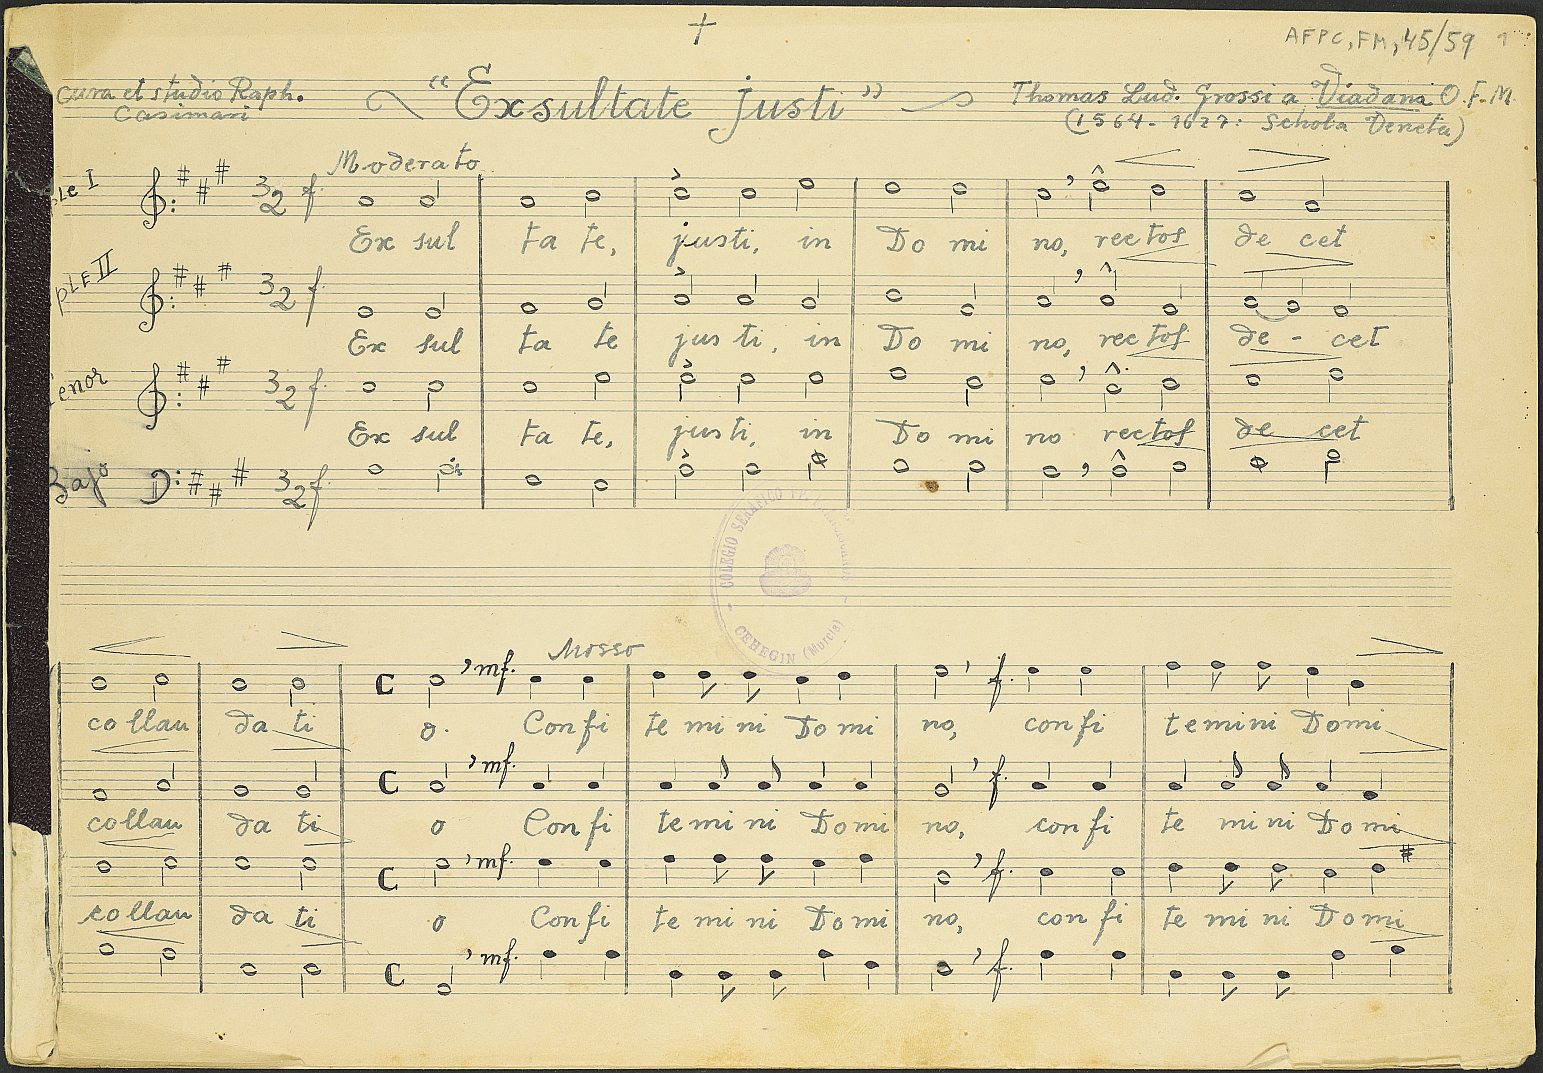 †
AFPC, FM, 45/59 1
cura et studio Raph.
Casimari
"Exsultate justi"
Thomas Lud. Grossi a Viadana O.F.M.
(1564-1627: Schola Veneta)
Moderato
ple I
3 2 f.
Ex sul ta te, justi, in Do mi no, rectos de cet
ple II
3 2 f.
Ex sul ta te jus ti, in Do mi no, rectos de - cet
Tenor
3 2 f.
Ex sul ta te, justi, in Do mi no rectos de cet
Bajo
3 2 f.
COLEGIO SERAFICO
CEHEGIN (Murcia)
Mosso
C mf. f.
co llau da ti o. Confi te mi ni Do mi no, con fi temini Domi
C mf. f.
collau da ti o Con fi te mi ni Domi no, con fi te mi ni Do mi
C mf. f.
collau da ti o Confi te mi ni Domi no, con fi te mi ni Domi
C mf. f.